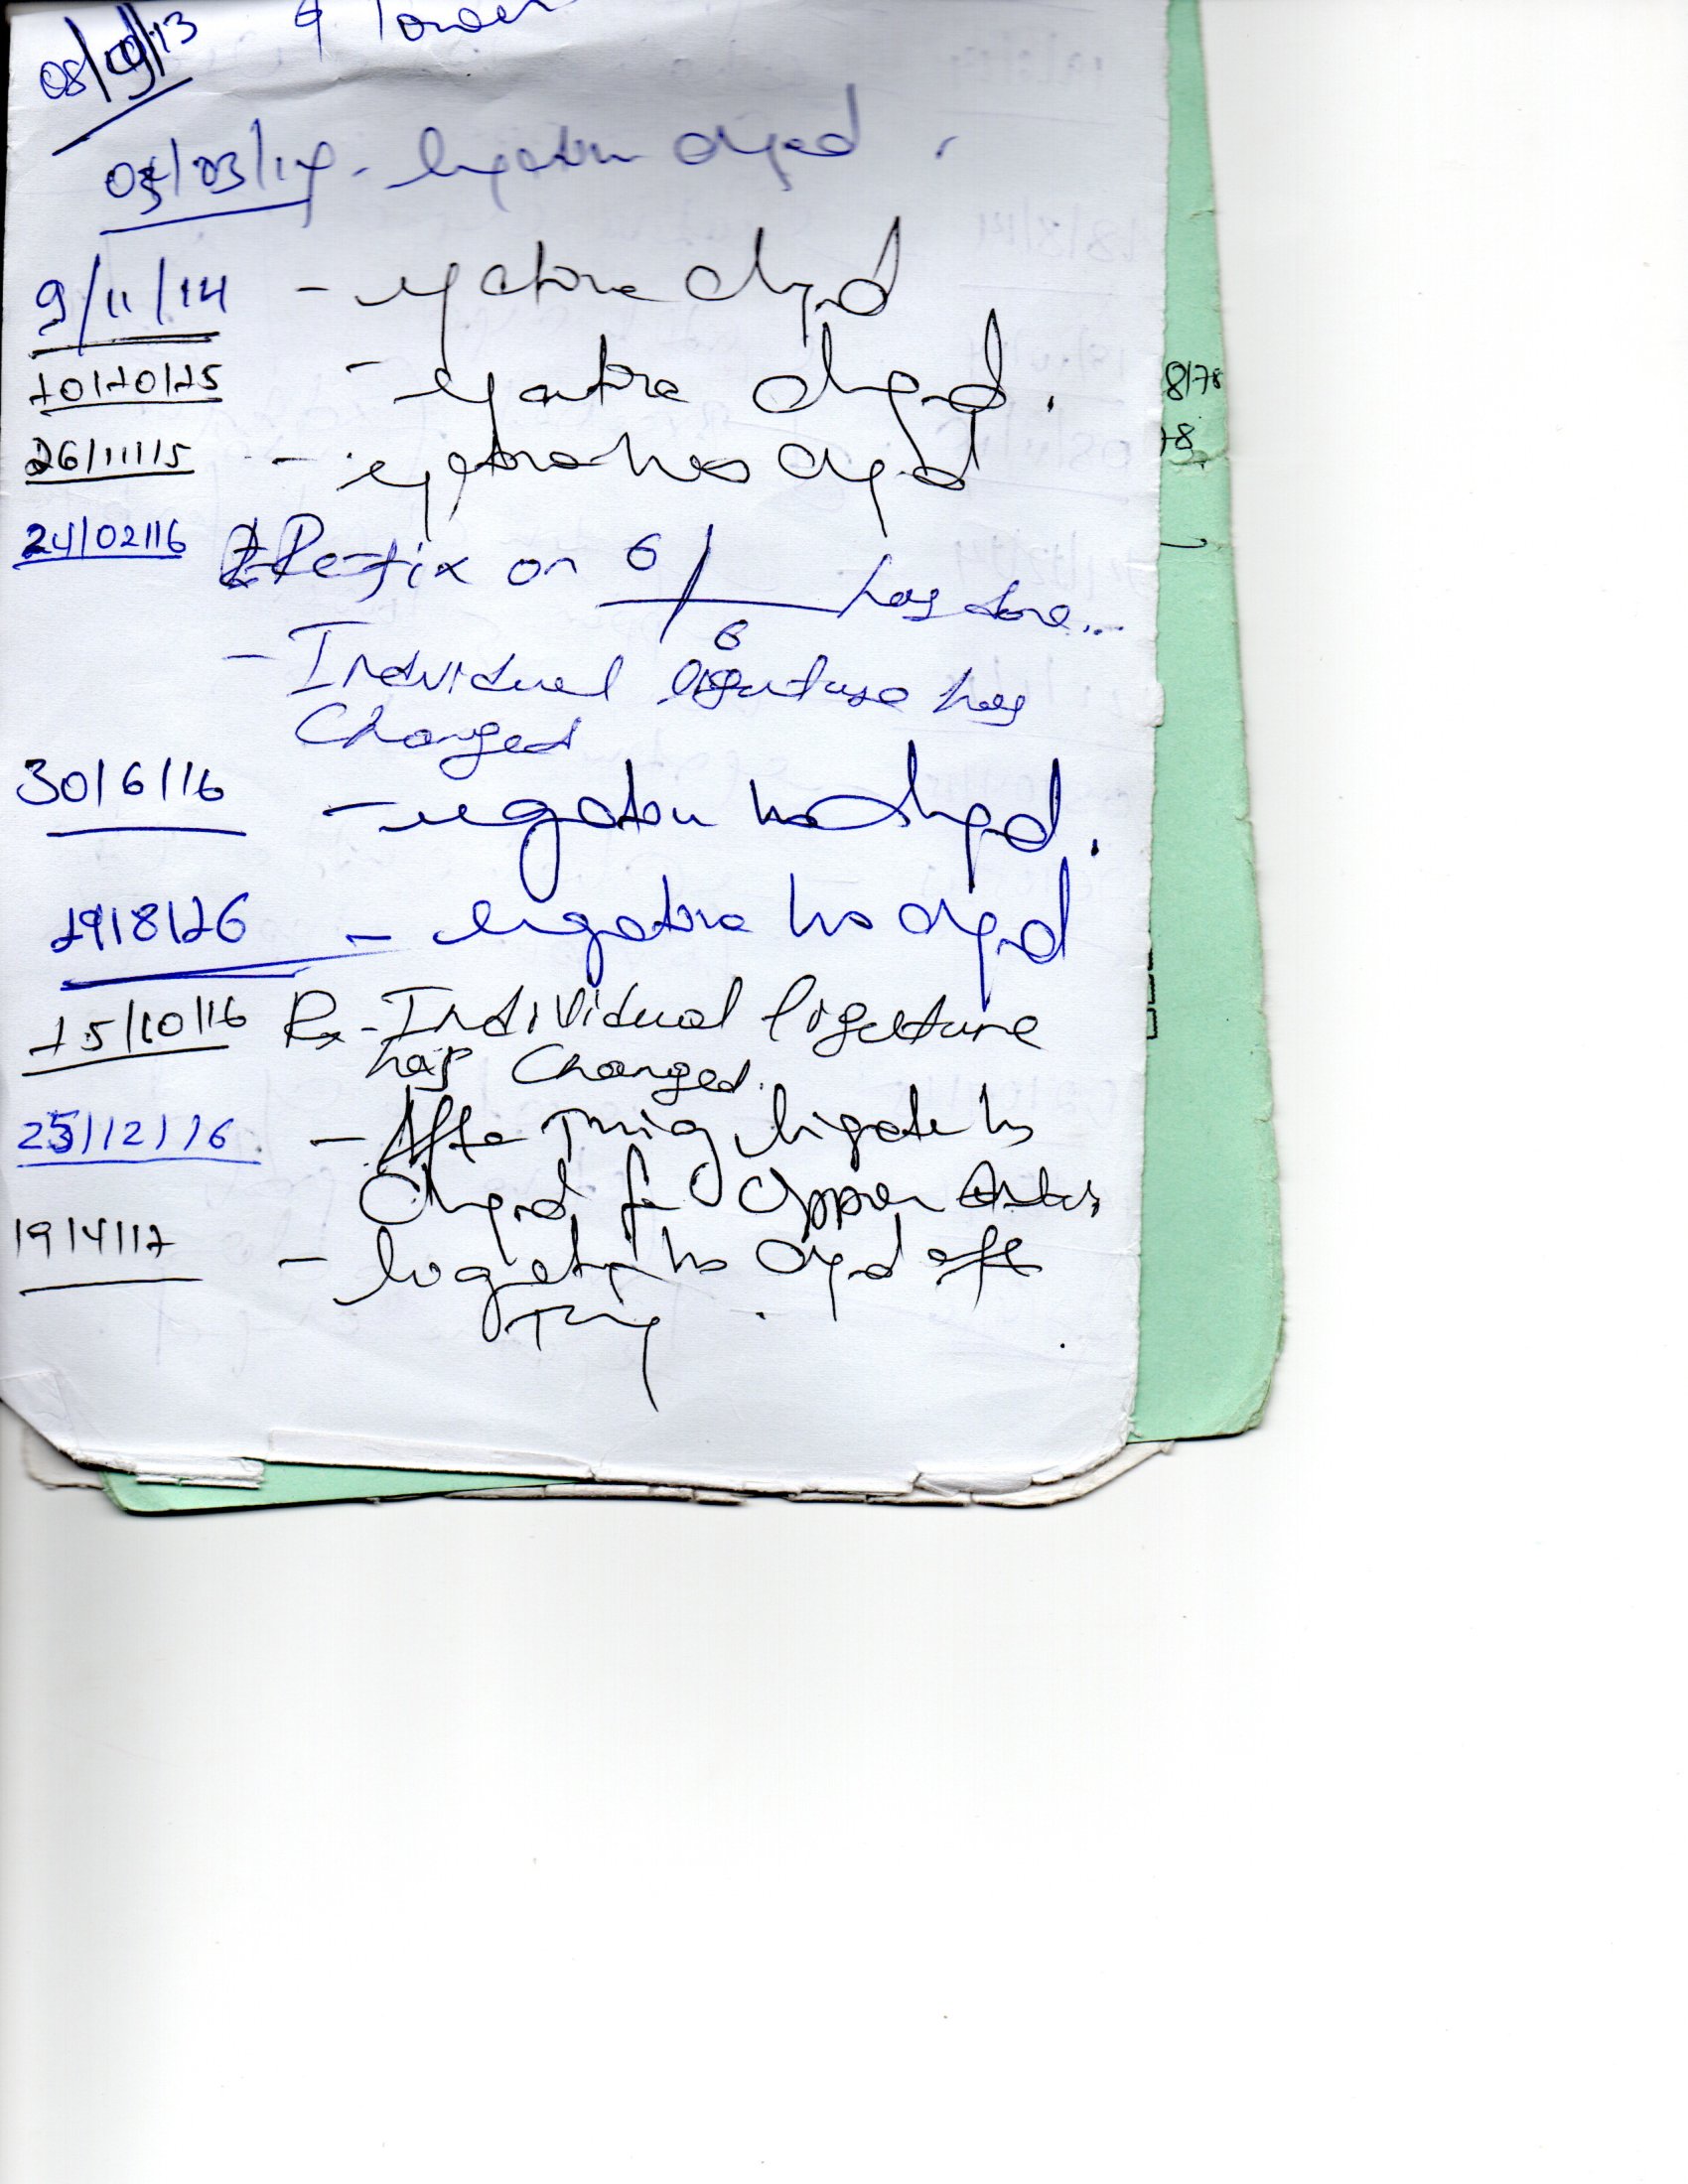 08/10/13 & lower
03/14 - ligature chged
9/11/14 - ligature chged
10/10/15 - ligature chged.
26/11/15 - ligature has chged
24/02/16 Re-fix on 6/6 has done...
- Individual ligature has
Changed
30/6/16 - ligature has chged.
19/8/16 - ligature has chged
15/10/16 Rx - Individual ligature
has Changed.
25/12/16 - After ligature has
Chged for upper
19/4/17 - ligature has chged after
8/78
78